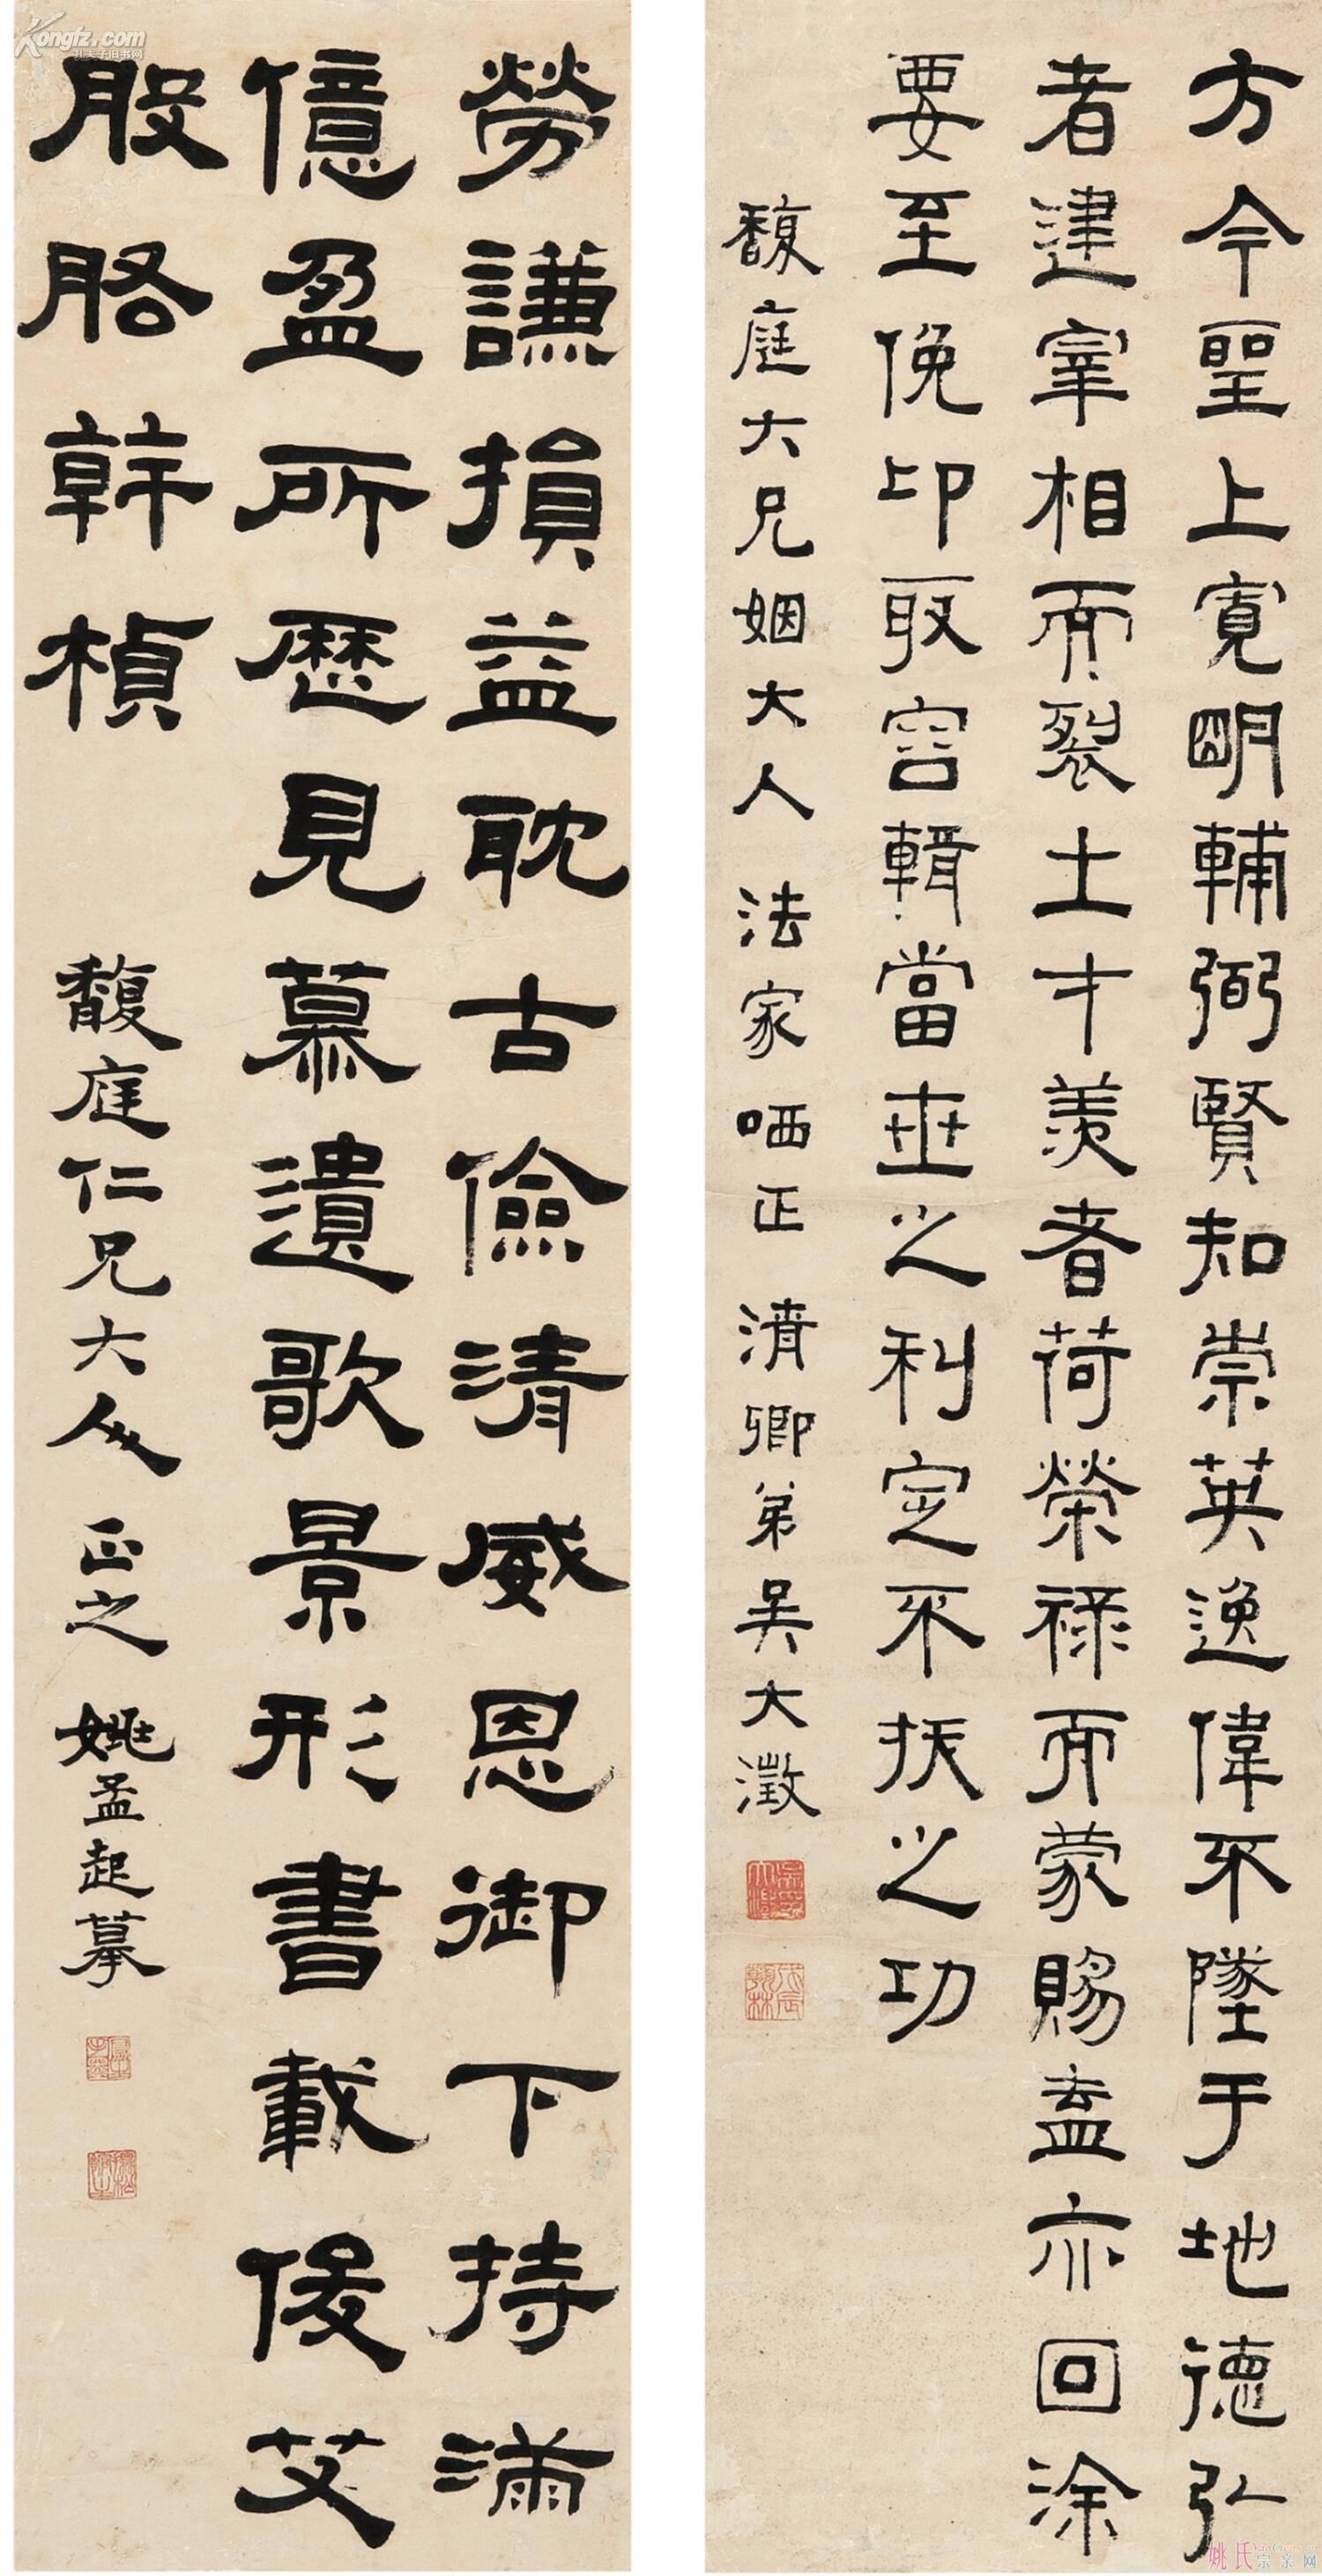 方今聖上寬明輔弼賢知崇英逸偉不墜于地德弘
者建宰相而裂土才羨者荷榮祿而蒙賜盍亦回涂
要至俛卬取容輯當世之利定不拔之功
馥庭大兄姻大人 法家哂正 清卿弟吳大澂
戊辰翰林
勞謙損益耽古儉清威恩御下持滿
億盈所歷見慕遺歌景形書載俊艾
股胳幹楨
馥庭仁兄大人 正之 姚孟起摹
Kongfz.com
孔夫子旧书网
姚氏宗亲网